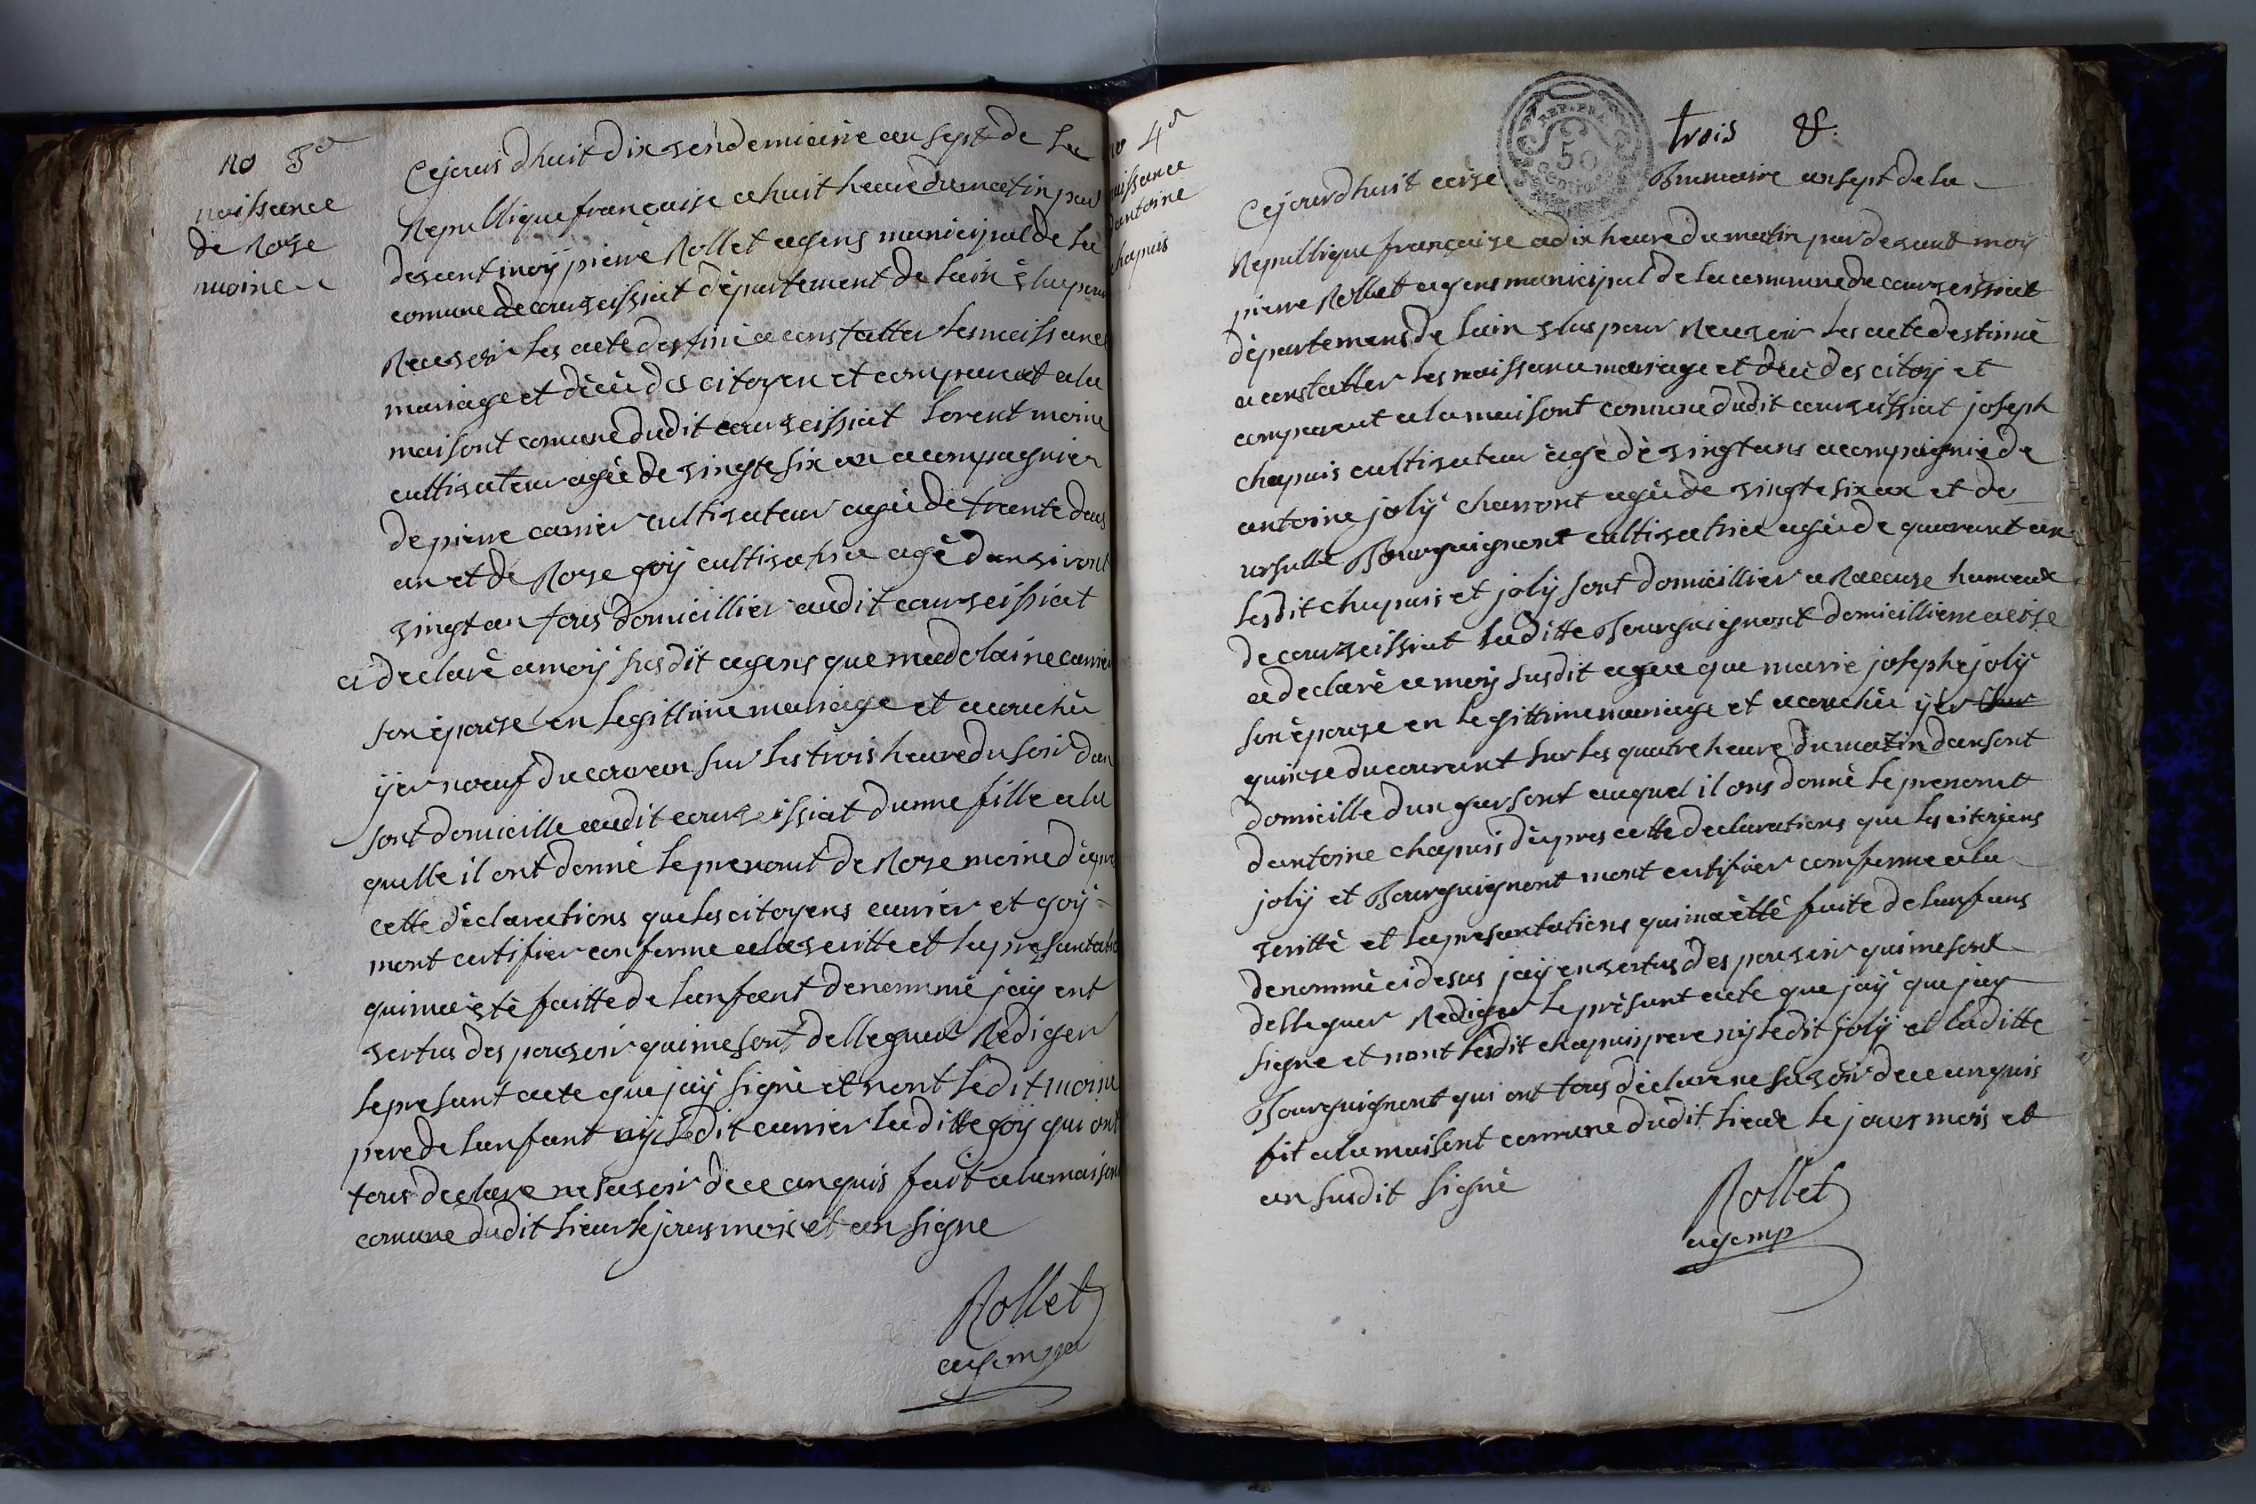 no 3e
naissance
de Rose
moine
Cejours dhuit dix vendemiaire an sept de la
Republique française a huit heure du matin par
devant moÿ pierre Rollet agens municipal de la
comune de courveissiat département de lain élu pour
Recevoir les acte destiné a constatter les naissance
mariage et décé des citoyen et compareut a la
maisont comune dudit courveissiat lorent moine
cultivateur agée de vingte six an acompagnier
de pierre carrier cultivateur agée de trante deus
an et de Rose goÿ cultivatrice agé danviront
vingt an tous domicillier audit courveissiat
a declaré a moÿ susdit agens que madelaine carrier
son épouse en legittime mariage et acouchée
ÿer noeuf du couran sur les trois heure du soir dan
sont domicille audit courveissiat dunne fille a la
quelle il ont donné le prenomt de Rose moine dapres
cette déclarations que les citoyens carrier et goÿ
mont certifier conforme a la veritte et la presantation
qui ma eté faitte de lanfant denommé jaÿ ent
vertus des pouvoir qui me sont delleguer Rediger
le presant acte que jaÿ signé et nont ledit moine
pere de lanfant nÿ ledit carrier laditte goÿ qui ont
tous declare ne savoir de ce anquis fait a la maisont
comune dudit lieux le jours mois et an signe
Rollet
agemp
no 4e
naissance
dantoine
chapuis
trois &.
REP. FRA.
50
centimes
Cejourdhuit seise Brumaire an sept de la
Republique française a dix heure du matin par devant moÿ
pierre Rollet agens municipal de la commune de courveissiat
départemens de lain élus pour Recevoir les acte destiné
a constatter les naissance mariage et décé des citoÿ et
comparent a la maisont comune dudit courveissiat joseph
chapuis cultivateur agé dé vingt ans acompagnié de
antoine jolÿ charront agée de vingte six an et de
ursulle Bourguignont cultivatrice agée de quarant an
lesdit chapuis et jolÿ sont domicillier a Racouse hameaux
de courveissiat laditte Bourguignont domicilliere a
a declaré a moÿ susdit agen que marie josephe jolÿ
son épouse en legittime mariage et acouchée ÿer
quinse du courant sur les quatre heure du matin dan sont
domicille dun garsont auquel il ons donné le prenomt
dantoine chapuis dapres cette declarations que les citoyens
jolÿ et Bourguignont mont certifier conforme a la
veritté et la presantations qui ma étté faite de lanfans
denommé cidesus jaÿ en vertus des pouvoir qui me sont
delleguer Rediger le présant acte que jaÿ que jay
signe et nont lesdit chapuis pere nÿ ledit jolÿ et laditte
Bourguignont qui ont tous déclare ne savoir de ce anquis
fit a la maisont comune dudit lieux le jours mois et
an susdit signé
Rollet
agemp